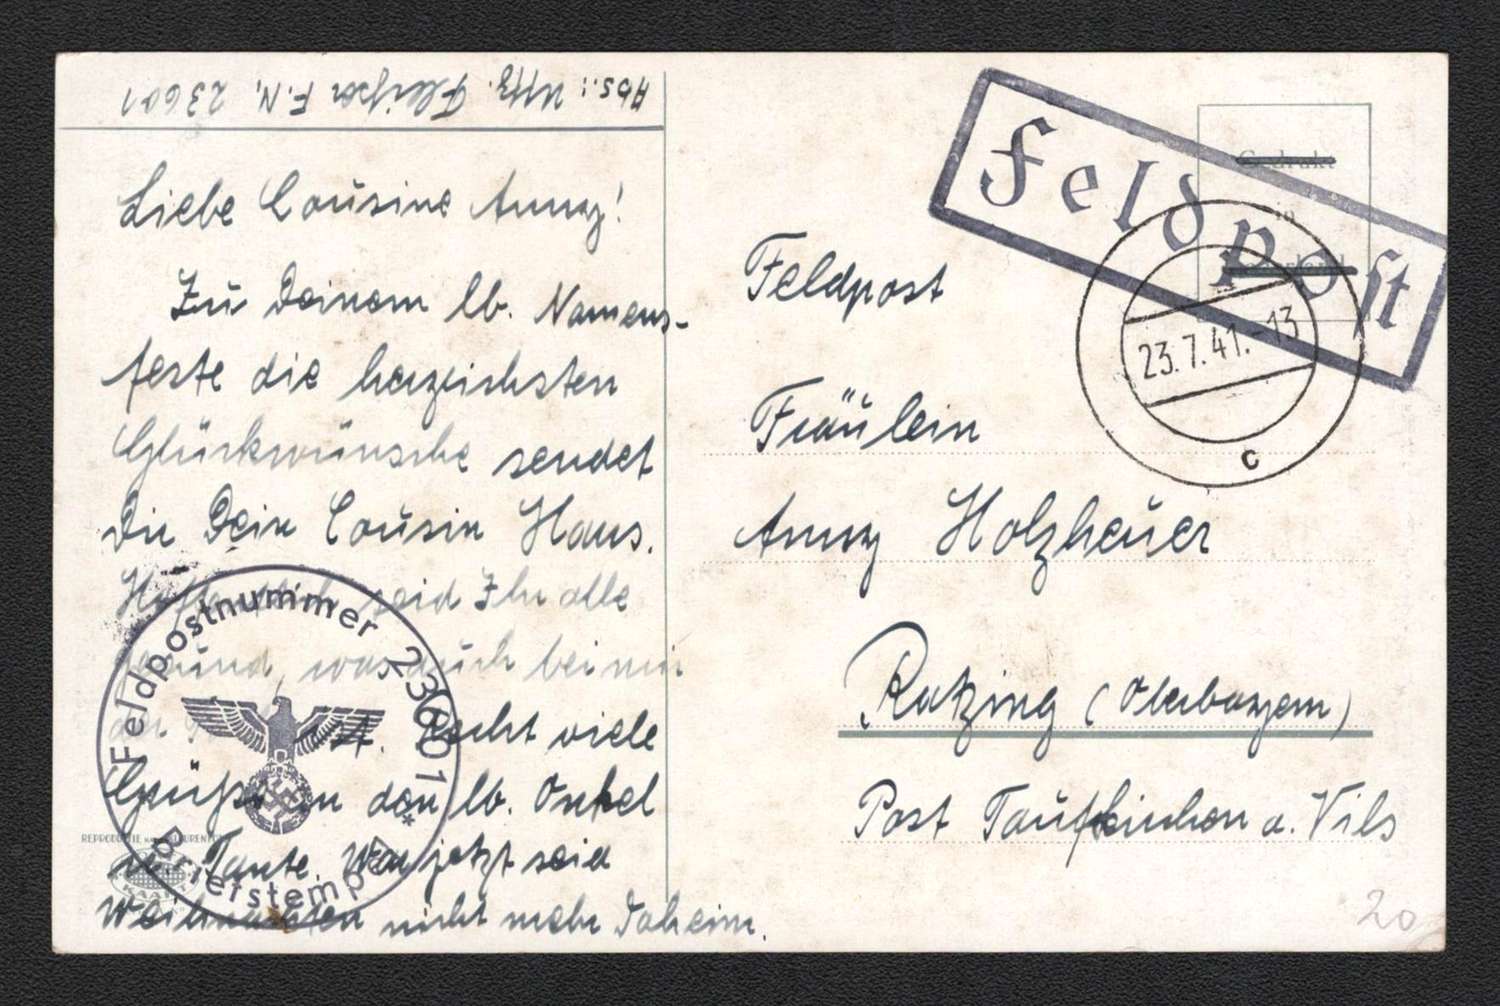 Abs.: Uffz. F.N. 23601
Liebe Cousine Anny!
Zu Deinem lb. Namens-
feste die herzlichsten
Glückwünsche sendet
Dir Dein Cousin Hans.
Hoffentlich seid Ihr alle
gesund, was auch bei mir
der ist. Recht viele
Grüße an den lb. Onkel
u. Tante. War jetzt seid
Weihnachten nicht mehr daheim.
Feldpostnummer 23601
*
Briefstempel
REPRODUCTIE
Feldpost
Gedrukt
in
23.7.41.-13
c
Feldpost
Fräulein
Anny Holzheuer
Ratzing (Oberbayern)
Post Taufkirchen a. Vils
20